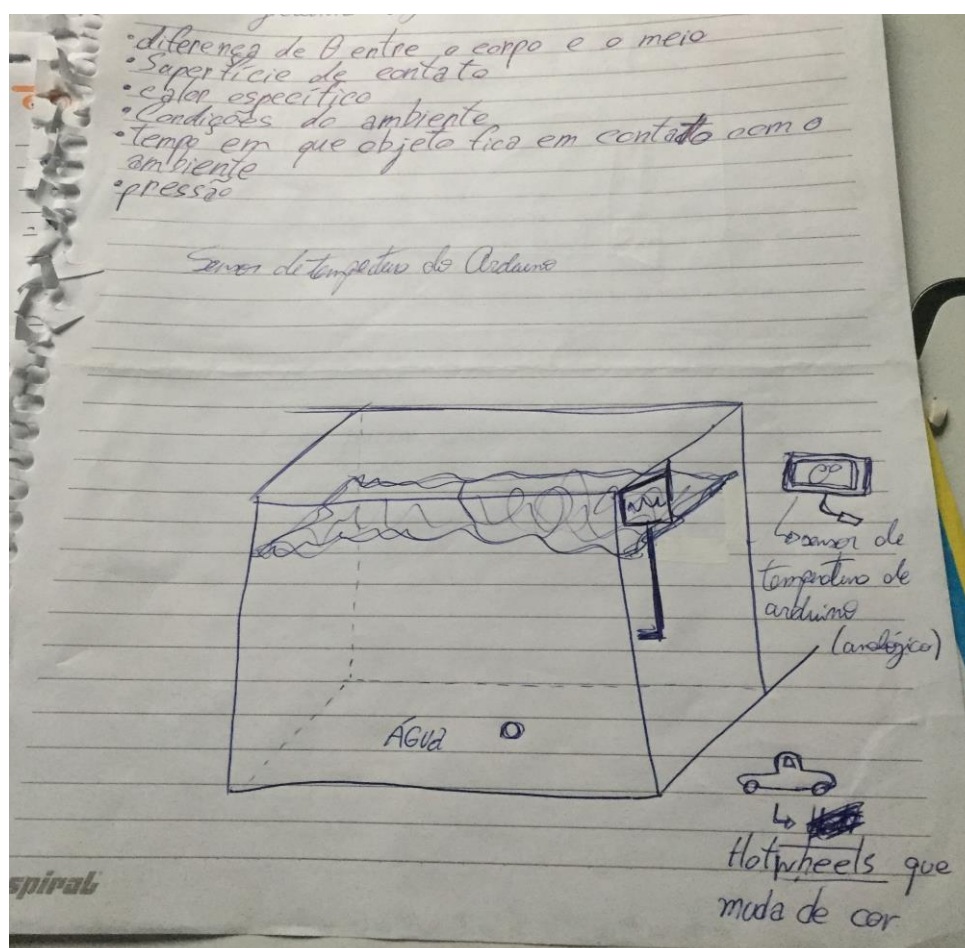 •diferença de θ entre o corpo e o meio
•Superfície de contato
•calor específico
•Condições do ambiente
•tempo em que objeto fica em contato com o
ambiente
•pressão
Sensor de do Arduino
sensor de
de
arduino
(analógico)
ÁGUA
Hotwheels que
muda de cor
spiral